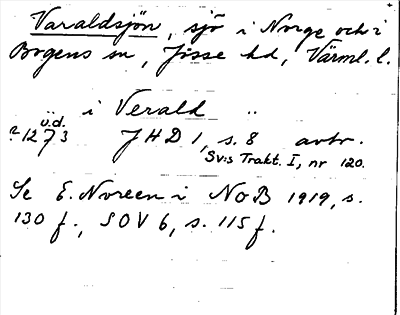 Varaldsjön, sjö i Norge och i
Bogens sn, Jösse hd, Värml. l.
i Verald
u.d.
?1273 JHD 1, s. 8 avtr.
Sv:s Trakt. I, nr 120.
Se E. Noreen i NoB 1919, s.
130 f., SOV 6, s. 115 f.